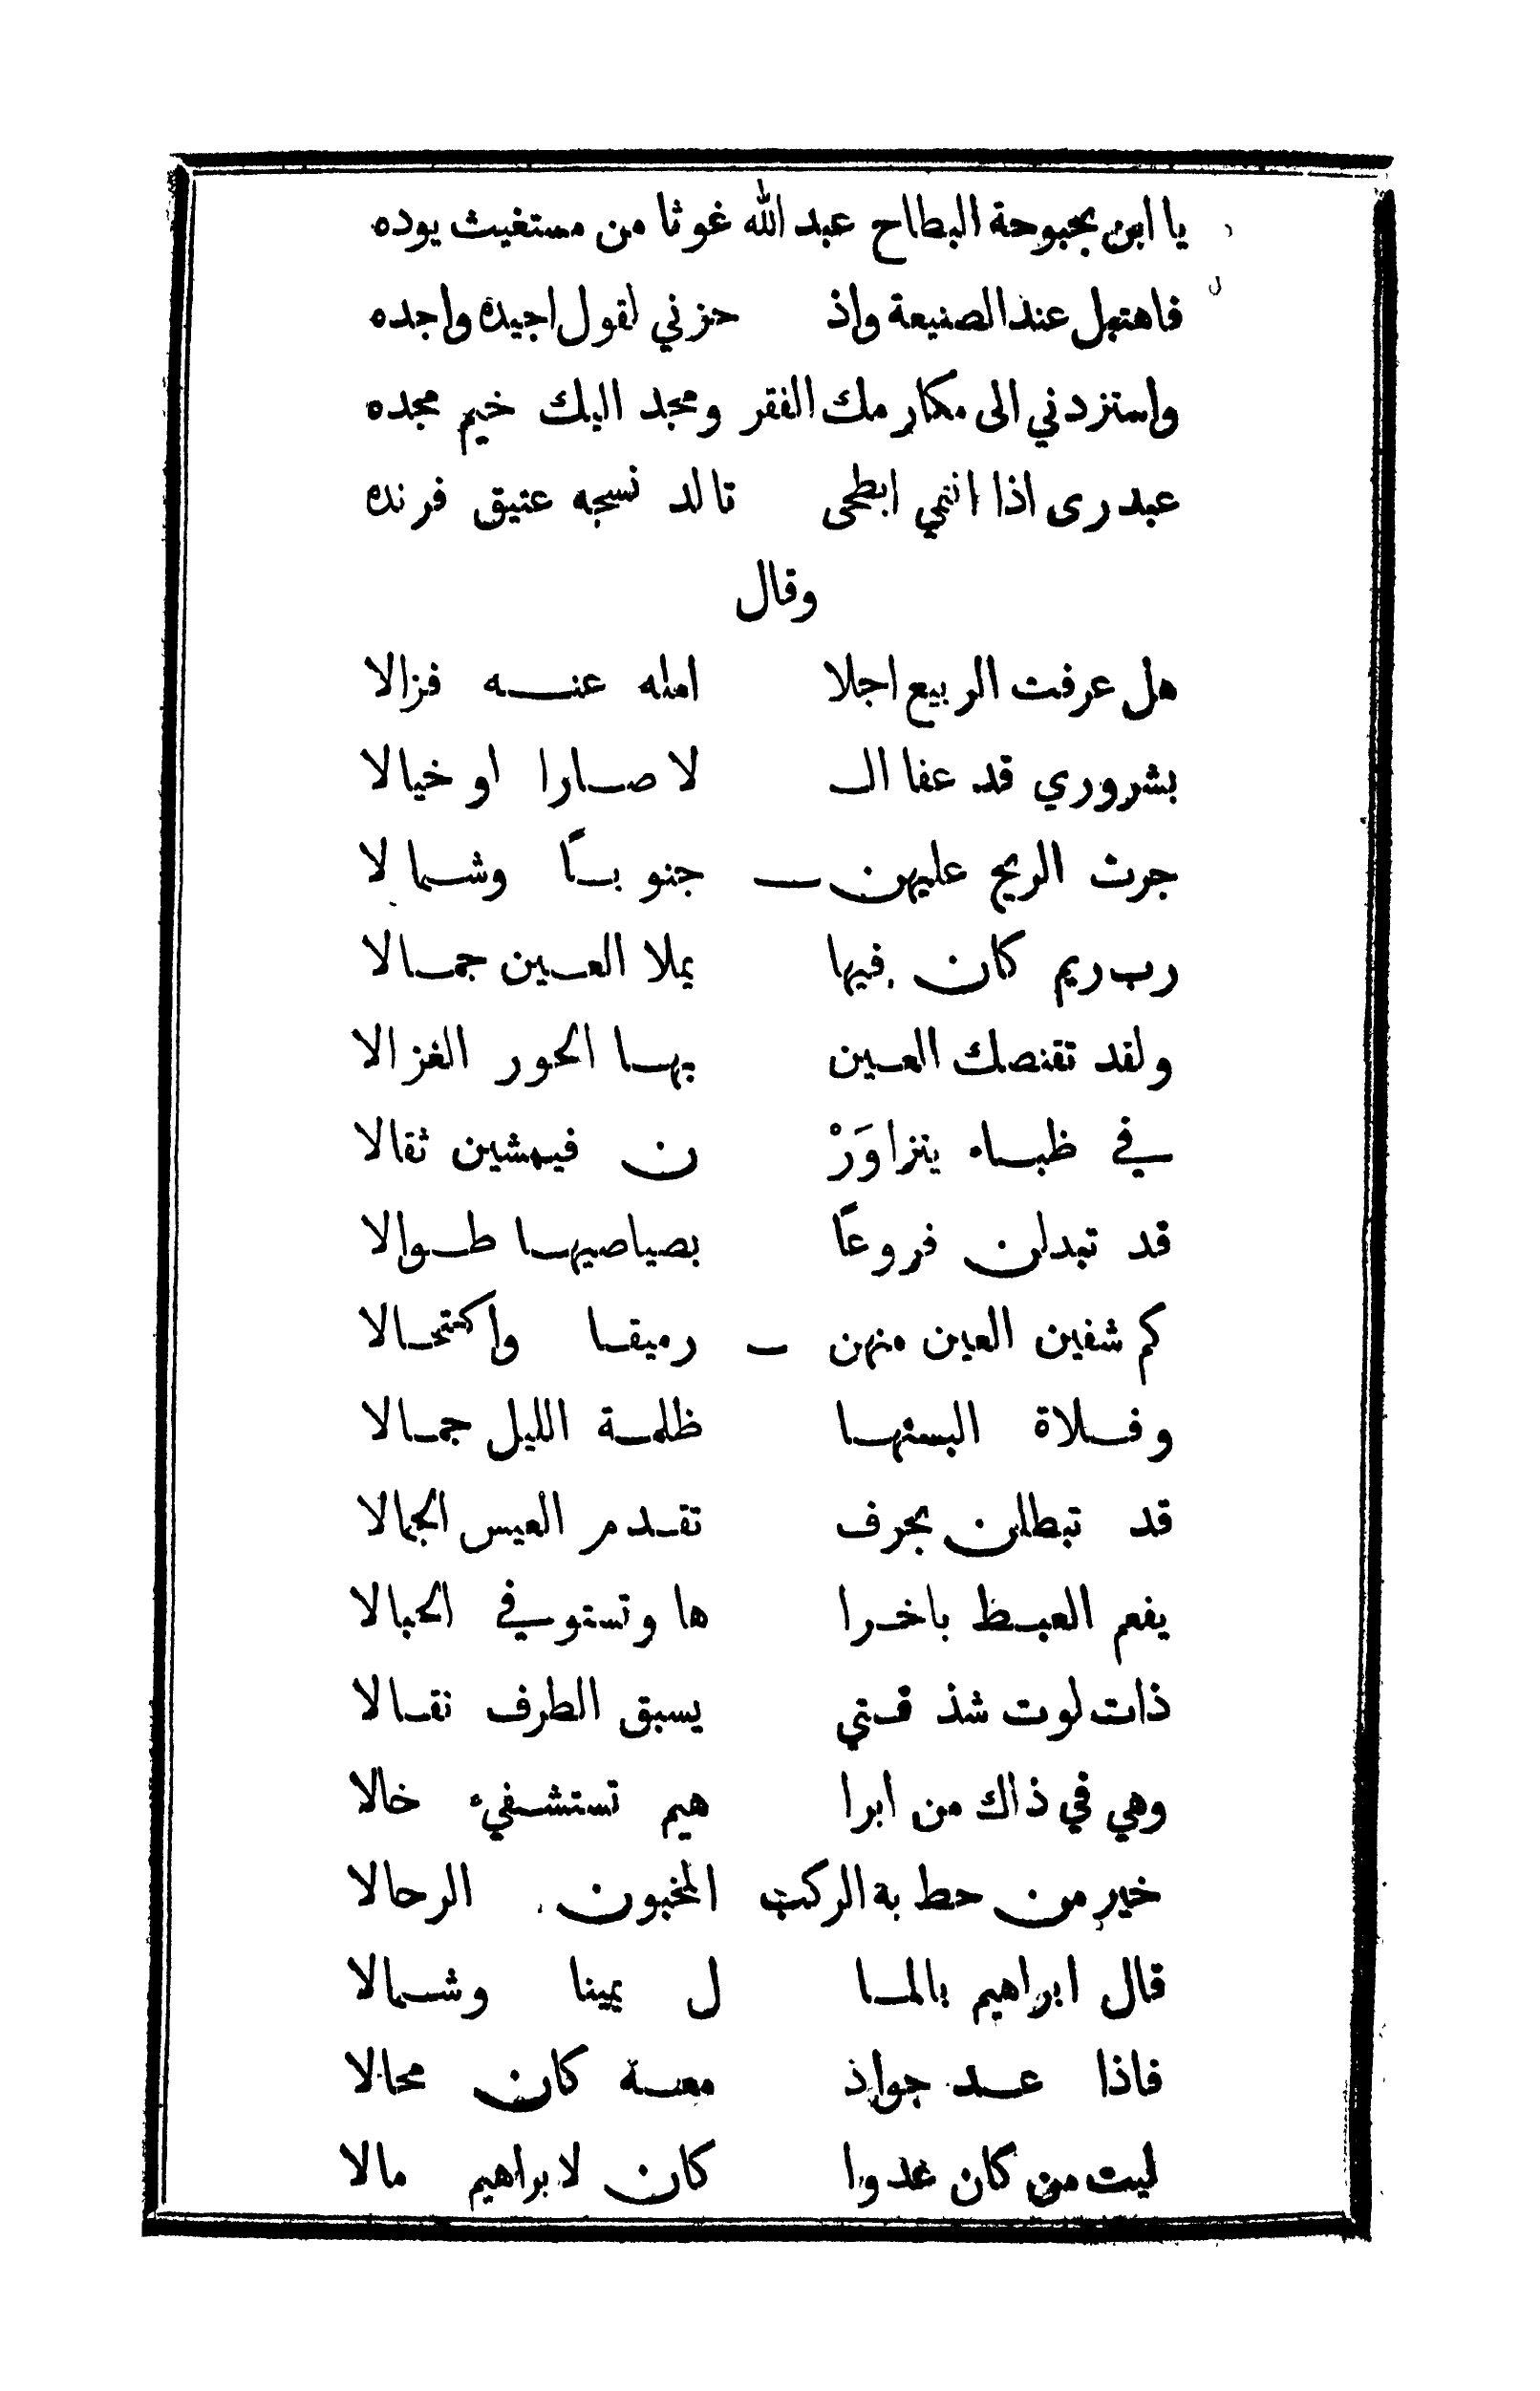 يا ابن بحبوحة البطاح عبد الله غوثا من مستغيث يوده
فاهتبل عند الصنيعة واذ حزني لقول اجيده واجده
واستزدني الى مكارمك الفقر ومجد اليك خيم مجده
عبدرى اذا انتمي ابطحى تالد نسجه عتيق فرنده
وقال
هل عرفت الربيع اجلا اهله عنه فزالا
بشروري قد عفا الـ لا صارا او خيالا
جرت الريح عليهن جنوبـًا وشمالا
رب ريم كان فيها يملا العين جمالا
ولقد تقنصك العين بها الحور الغزالا
في ظباء يتزاوَرْ ن فيمشين ثقالا
قد تبدلن فروعًا بصياصيها طوالا
كم شفين العين منهن رميقا واكتحالا
وفلاة البستها ظلمة الليل جمالا
قد تبطلن بجرف تقدم العيس الجمالا
يفعم العبظ باخرا ها وتستوفي الحبالا
ذات لوت شذ قتي يسبق الطرف نقالا
وهي في ذاك من ابرا هيم تستشفيء خالا
خير من حط به الركب المخبون الرحالا
قال ابراهيم بالما ل يمينا وشمالا
فاذا عد جواذ معـة كان محالا
ليت من كان غدوا كان لابراهيم مالا